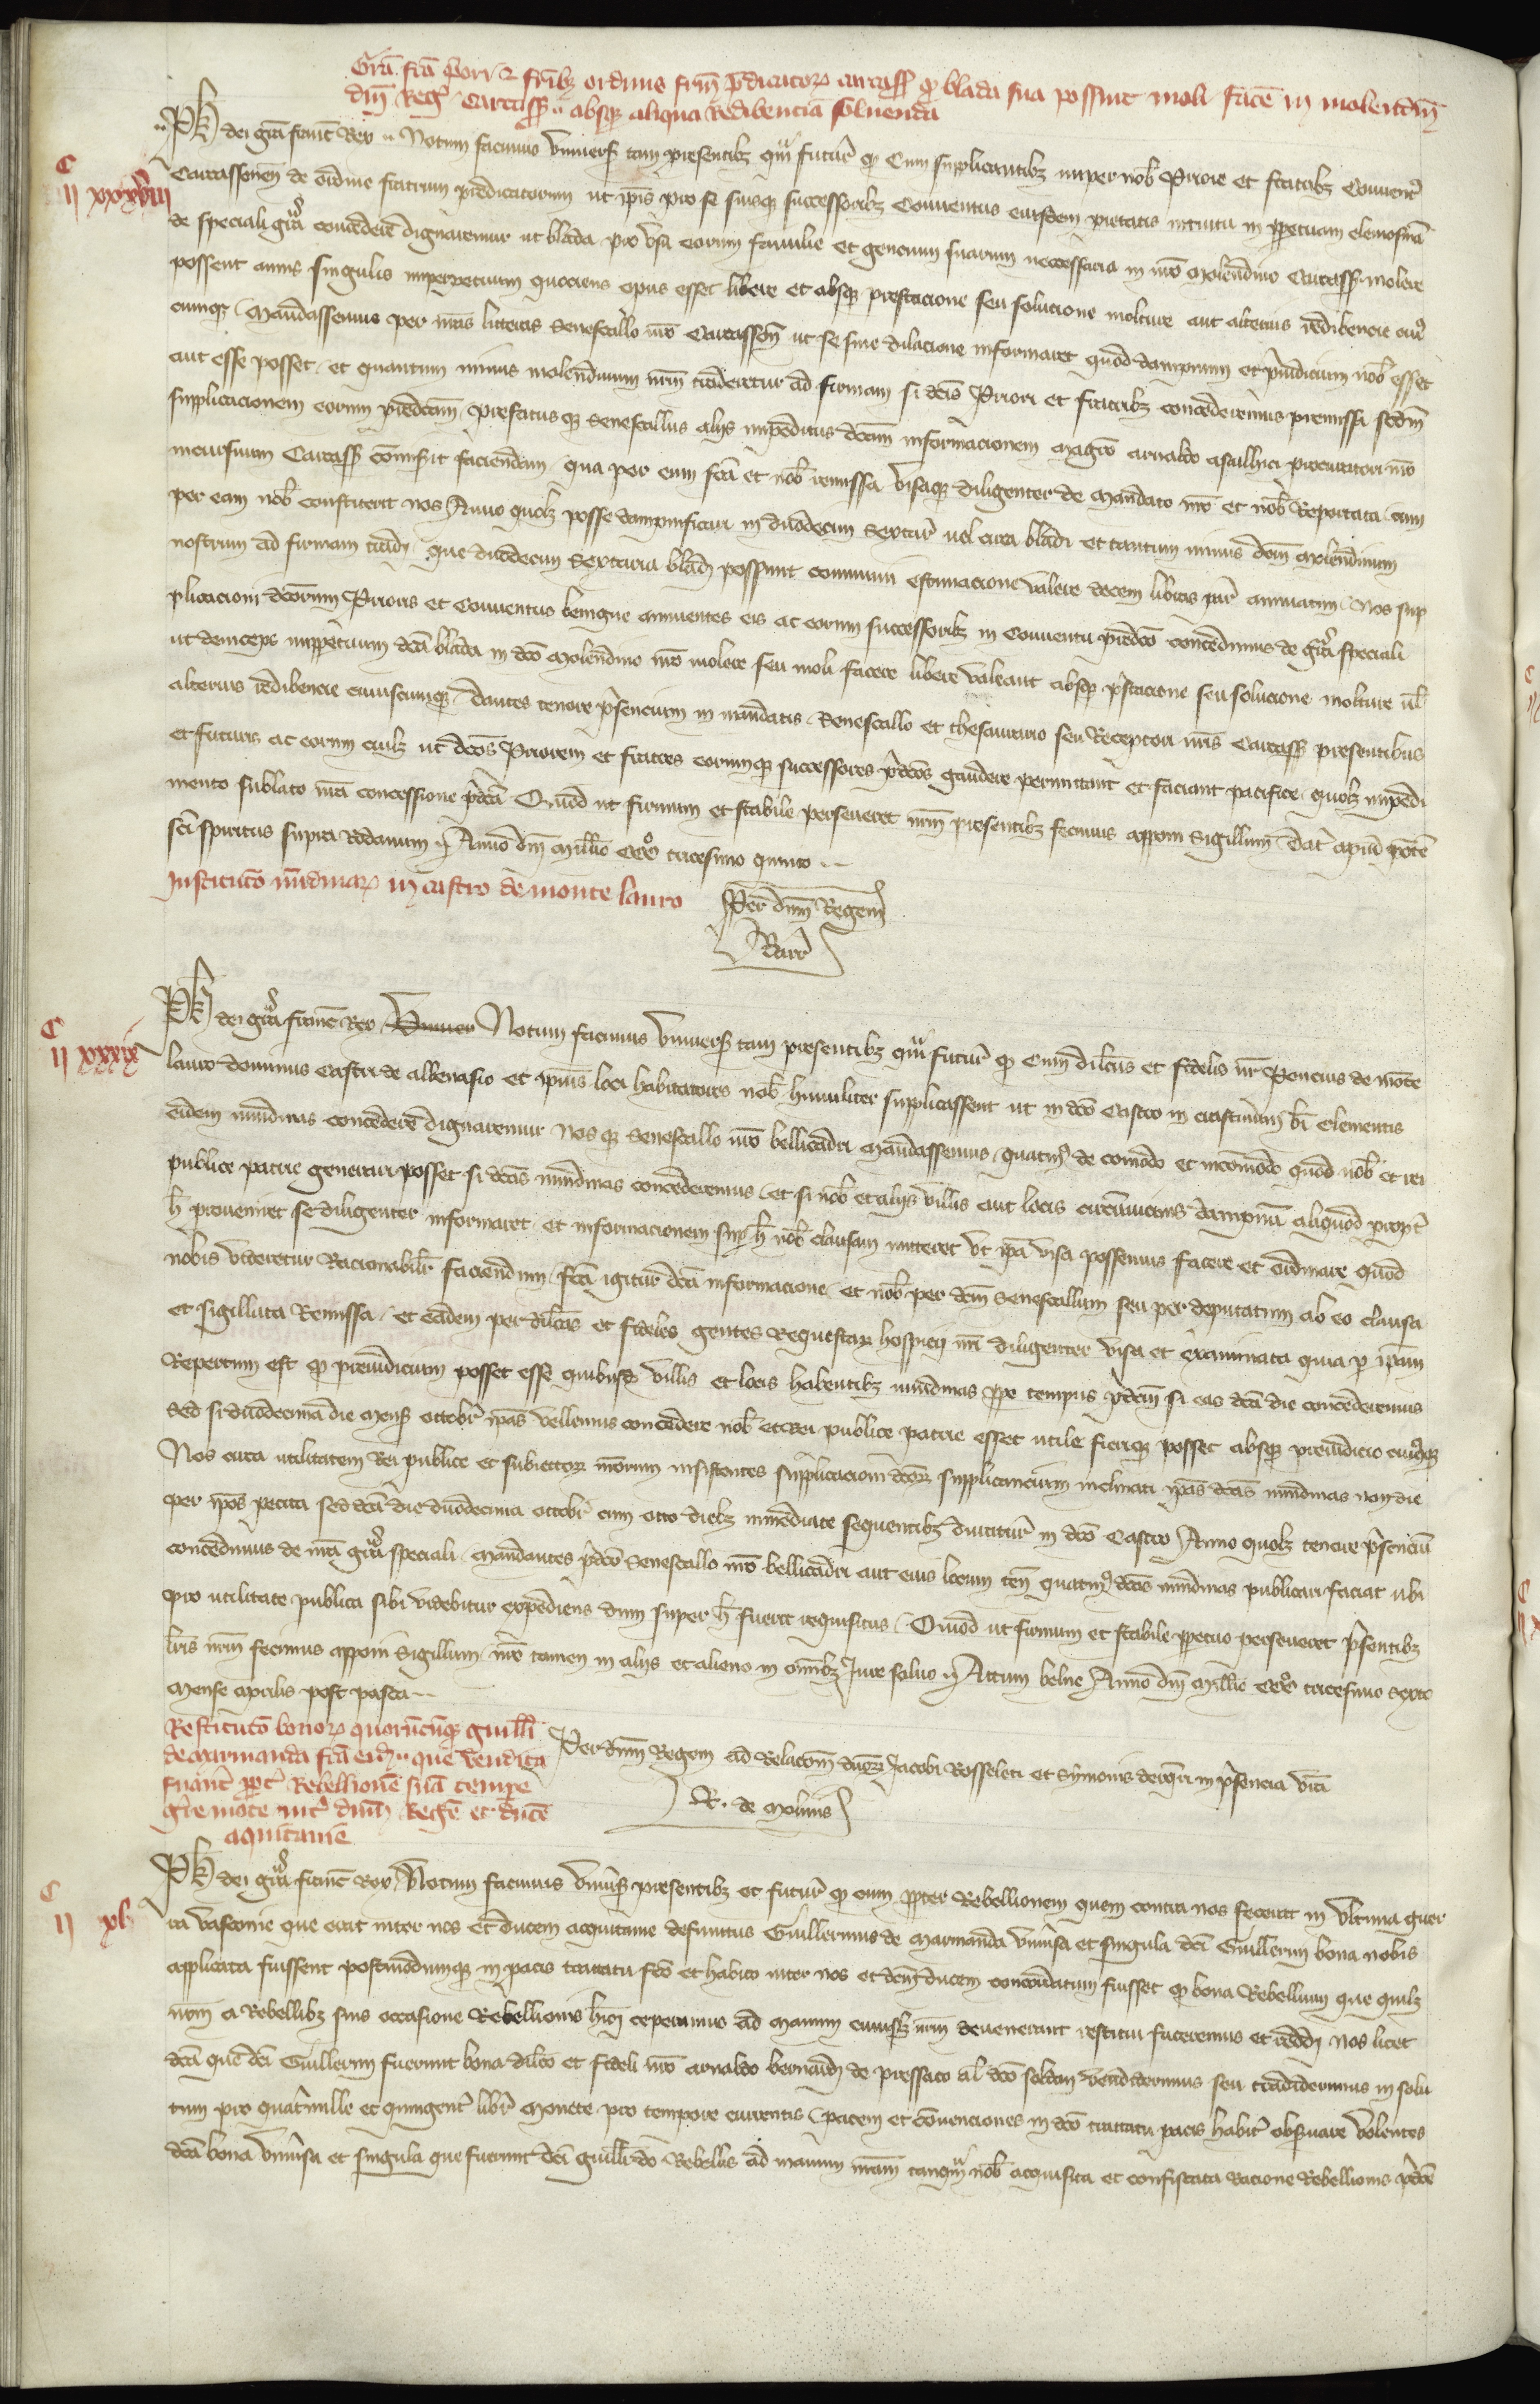 Grā fcā p̄ori et fr̄ibȝ ordinis fr̄m p̄dicatoȝ carcass̄ qꝫ blada sua possint moli facē in molendīs
dn̄i Reg̾ Carcass̄ absqꝫ aliqua redibencia soluenda
Ph̄ dei grā francͦ Rex Notum facimus vniuers̾ tam presentibȝ qͣm futur̾ qꝫ Cum supplicantibȝ nuper nob̾ Priore et fratribȝ Conuent̾
C
II xxxviii
Carcassonen̄ de ordine fratrum predicatorum ut ip̄is pro se suisqꝫ successoribȝ Conuentus eiusdem pietatis intuitu in ꝑpetuam elemosinā
de speciali grā concedere dignaremur ut blada pro vsu eorum familie et gencium suarum necessaria in nr̄o molendino Carcass̄ molere
possent annis singulis imperpetuum quociens opus esset libere et absqꝫ prestacione seu solucione molture aut alterius redibencie cui
cunqꝫ Mandassemus per nr̄as litteras Senescallo nr̄o Carcassōn̄ ut se sine dilacione informaret quod dampnum et p̄iudicium nob̾ esset
aut esse posset et quantum minus molendinum nr̄m traderetur ad firmam si dc̄is Priori et fratribȝ concederemus premissa scdm̄
supplicacionem eorum predcām Prefatusqꝫ Senescallus alijs impeditus dc̄am informacionem magr̄o arnaldo asailliti procuratori nr̄o
incursuum Carcass̄ cōmisit faciendam qua per eum fcā et nob̾ remissa visaqꝫ diligenter de mandato nr̄o et nob̾ Reportata cum
per eam nob̾ constiterit nos Anno quolȝ posse dampnificari in duodecim sextar̾ uel circa bladi et tantum minus dcm̄ molendinum
nostrum ad firmam tradj que duodecim sextaria bladj possunt communi estimacione valere decem libras tur̾ annuatim Nos sup
plicacioni dcōrum Prioris et Conuentus benigne annuentes eis ac eorum successoribȝ in Conuentu predcō concedimus de grā speciali
ut deinceps imꝑpetuum dcā blada in dcō molendino nr̄o molere seu moli facere libere valeant absqꝫ p̄stacione seu solucione molture ul̾
alterius redibencie cuiuscunqꝫ Dantes tenore p̄sencium in mandatis Senescallo et thesaurario seu Receptori nr̄is Carcass̄ presentibus
et futuris ac eorum cuilȝ ut dcōs Priorem et fratres eorumqꝫ successores p̄dcōs gaudere permittant et faciant pacifice quolȝ impedi
mento sublato nr̄a concessione p̄dcā Quod ut firmum et stabile perseueret nr̄m presentibȝ fecimus apponi Sigillum Dat̾ apud pōtē
scī spiritus supra Rodanum Anno dn̄i Mill̄io CCCͦ tricesimo quinto
Institutō nūdinaȝ in castro de monte lauro
Per dn̄m Regem
Barr̾
Ph̄ dei grā francͦ Rex Vniuer Notum facimus vniuers̾ tam presentibȝ qͣm futur̾ qꝫ Cum dilc̄us et fidelis nr̄ Poncius de monte
C
II xxxix
lauro dominus Castri de albenasio et ip̄ius loci habitatores nob̾ humiliter supplicassent ut in dcō Castro in crastinum bī Clementis
eidem nundinas concedere dignaremur Nosqꝫ Senescallo nr̄o bellicadri mandassemus quatin̾ de comodo et incomodo quod nob̾ et rei
publice patrie generari posset si dcās nundinas concederemus et si nob̾ et alijs villis aut locis circūuicinis dampnū aliquod propt̾
h̄ proueniret se diligenter informaret et informacionem sup̾ h̄ nob̾ clausam mitteret vt ip̄a visa possemus facere et ordinare quod
nobis videretur Racionabilr̾ faciendum fcā igitur dcā informacione et nob̾ per dcm̄ Senescallum seu per deputatum ab eo clausa
et sigillata Remissa et eadem per dilc̄os et fideles gentes Requestaȝ hospicij nr̄i diligenter visa et examinata quia ꝑ ip̄am
Repertum est qꝫ preiudicium posset esse quibusd̾ villis et locis habentibȝ nundinas ꝓpe tempus p̄dcm̄ si eas dcā die concederemus
Sed si duodecima die mens̾ octobr̾ ip̄as vellemus concedere nob̾ et rei publice patrie esset utile fieriqꝫ posset absqꝫ preiudicio cuiusqꝫ
Nos circa utilitatem rei publice et subiectoȝ nr̄orum insistentes supplicacioni dcōȝ supplicancium inclinati ip̄as dcās nundinas non die
per ip̄os petita sed dcā die duodecima octobr̾ cum octo diebȝ immediate sequentibȝ duratur̾ in dcō Castro Anno quolȝ tenore p̄senciū
concedimus de nr̄a grā speciali Mandantes p̄dcō Senescallo nr̄o bellicadri aut eius locum ten̄ quatin̾ dcās nundinas publicari faciat ubi
pro utilitate publica sibi videbitur expediens dum super h̄ fuerit requisitus Quod ut firmum et stabile ꝑpetuo perseueret p̄sentibȝ
lr̄is nr̄m fecimus apponi Sigillum nr̄o tamen in alijs et alieno in omībȝ Jure saluo Actum belne Anno dn̄i Mill̄io CCCͦ tricesimo sexto
Mense aprilis post pasca
Restitutō bonoȝ quorūcūqꝫ guill̄i
de marmanda fcā eidj que vendita
fuer̄t ꝓpt̾ Rebellionē suā tempe
guer̄e mote int̾ dn̄m Regē et ducē
aquitanie
Per dn̄m Regem ad Relacōem dn̄oȝ Jacobi Rosseleti et Symonis in p̄sencia vrā
R. de Molinis
Ph̄ dei grā francͦ Rex Notum facimus vniūs̾ presentibȝ et futur̾ qꝫ cum ꝓpter Rebellionem quem contra nos fecerat in vltima guer
C
II xl
ra vasconie que erat inter nos et ducem acquitanie defunctus Guillermus de Marmanda vniūsa et singula dcī Guillermi bona nobis
applicata fuissent postmodumqꝫ in pacis tractatu fcō et habito inter nos et dcm̄ ducem concordatum fuisset qꝫ bona Rebellium que quilȝ
nr̄m a Rebellibȝ suis occasione Rebellionis h̄mōj ceperamus ad manum cuiuslȝ nr̄m deuenerant restitui faceremus et reddj Nos licet
dcā que dcī Guillermi fuerunt bona dilc̄o et fideli nr̄o arnaldo bernardj de pressaco al̾ dcō soldan vendiderimus seu tradiderimus in solu
tum pro quatuormille et quingent̾ libr̾ monete pro tempore currentis pacem et cōuenciones in dcō tractatu pacis habit̾ obseruare volentes
dcā bona vniūsa et singula que fuerunt dcī guill̄i Rebellis ad manum nr̄am tanqͣm nob̾ acquisita et confiscata racione Rebellionis p̄dcē